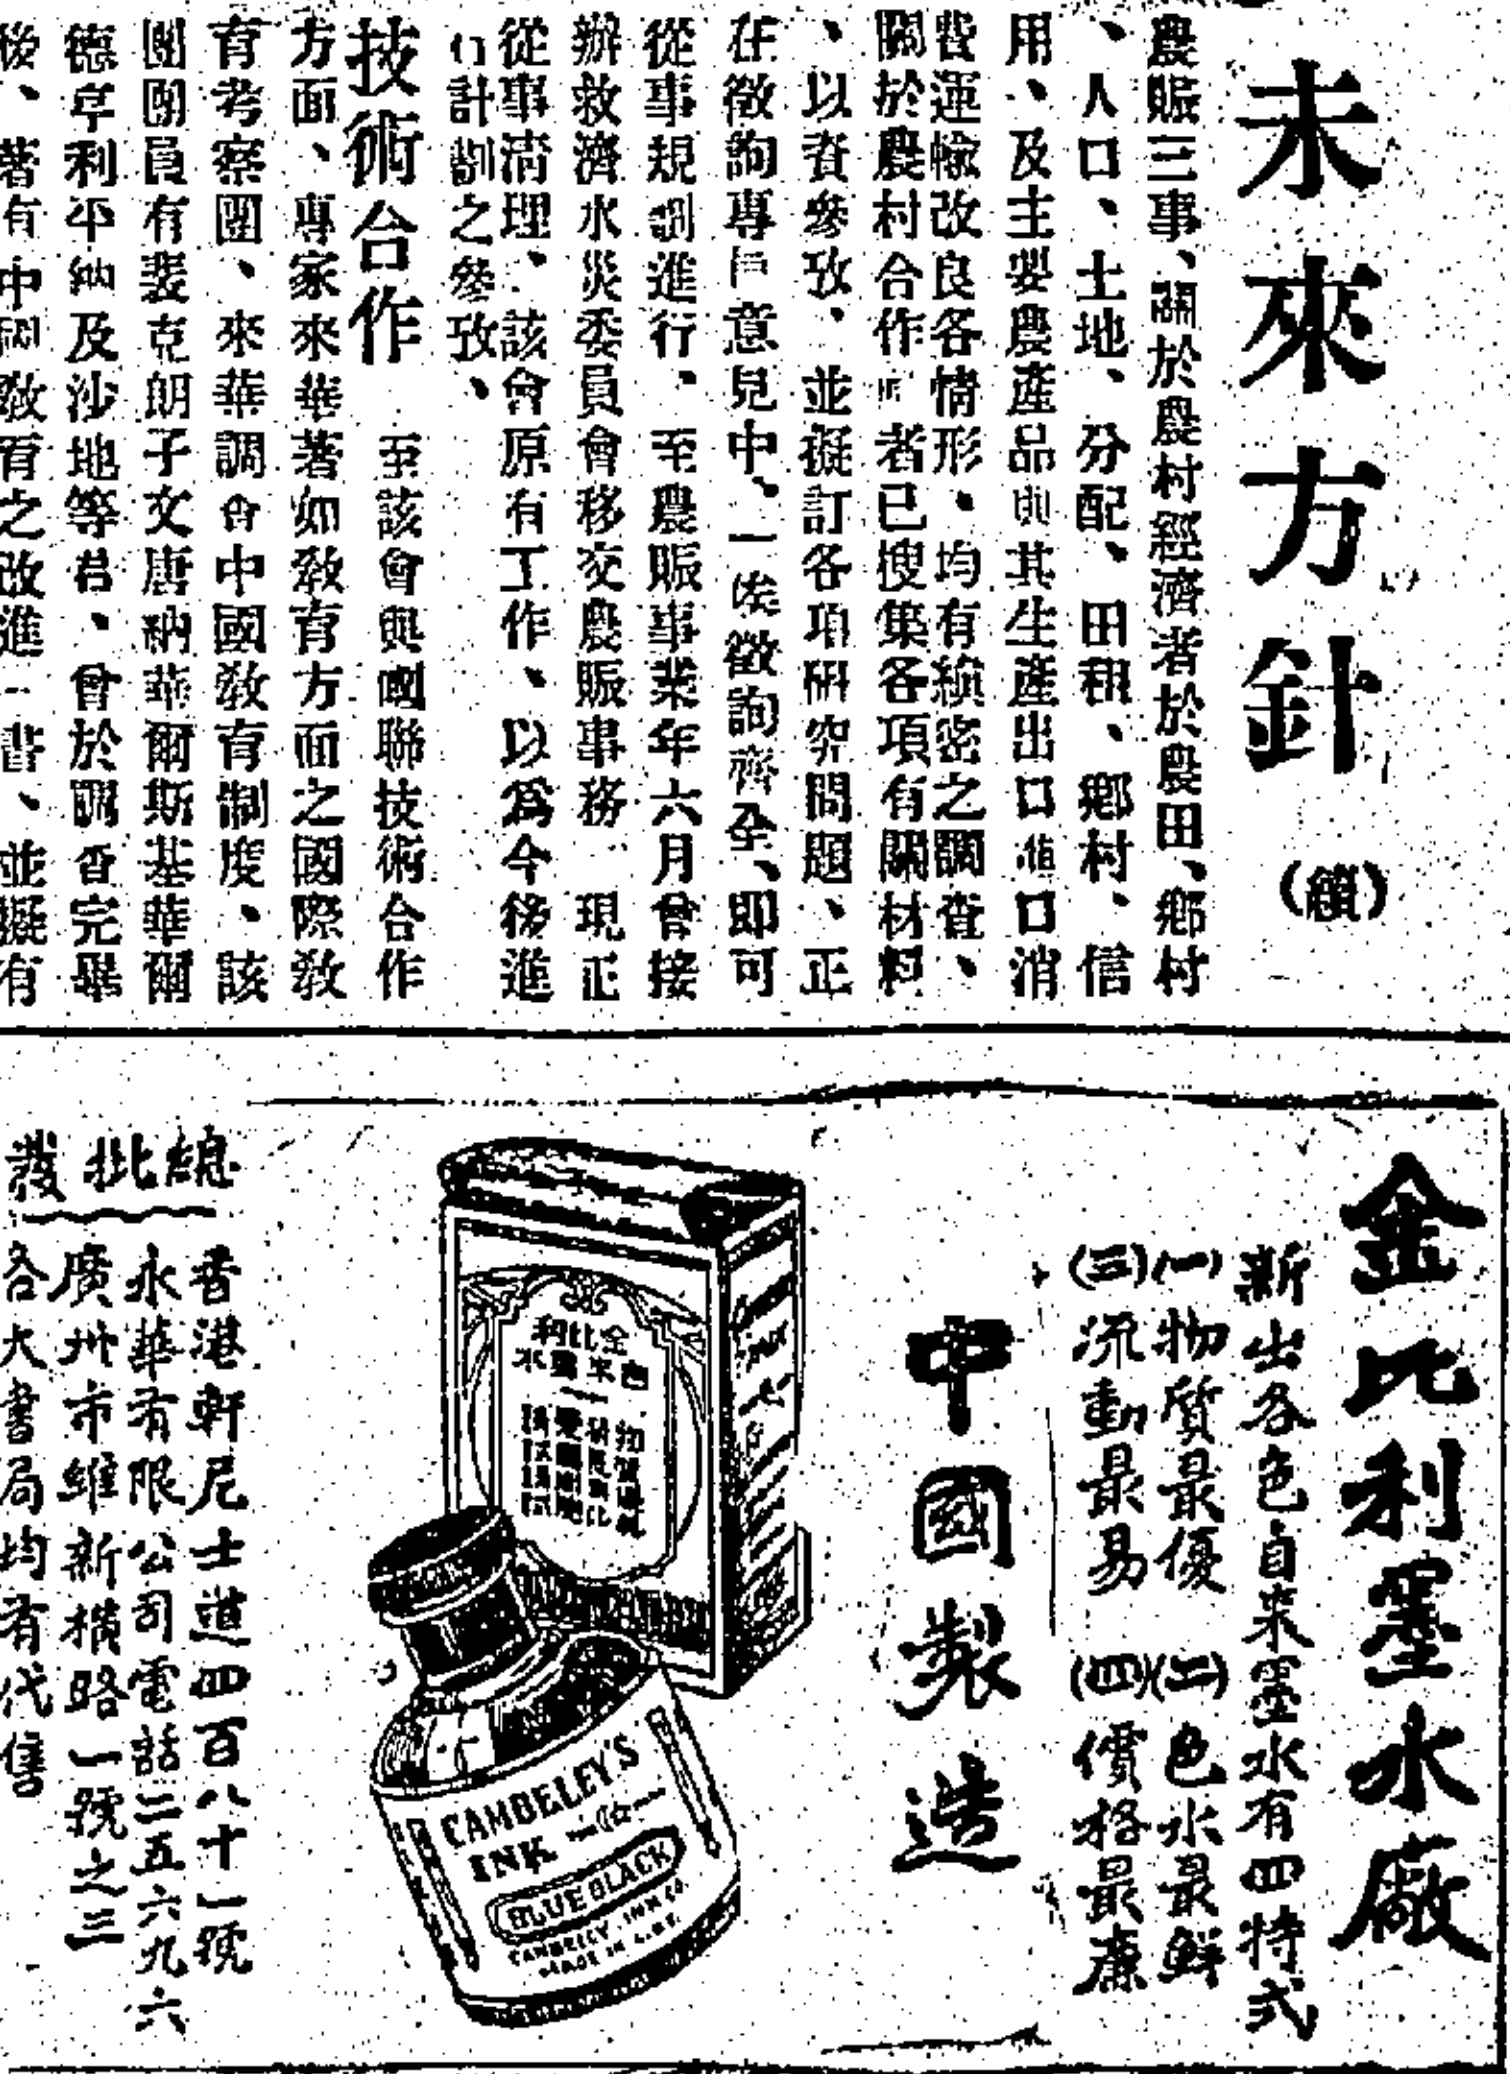 未來方針
(續)
農賑三事、關於農村經濟者於農田、鄉村
、人口、土地、分配、田租、鄉村、信
用、及主要農產品與其生產出口進口消
費運輸改良各情形、均有縝密之調查、
關於農村合作 者已搜集各項有關材料
、以資參攷、並擬訂各項研究問題、正
在徵詢專門意見中、一俟徵詢齊全、即可
從事規劃進行、至農賑事業年六月曾接
辦救濟水災委員會移交農賑事務 現正
從事清理、該會原有工作、以爲今後進
行計劃之參攷、
技術合作 至該會與國聯技術合作
方面、專家來華著如敎育方面之國際敎
育考察團、來華調查中國敎育制度、該
團團員有裴克朗子文唐納華爾斯基華爾
德亨利平納及沙地等君、曾於調查完畢
後、著有中國敎育之改進一書、並擬有
金比利墨水廠
新出各色自来墨水有四特式
(一)物質最優 (二)色水最鮮
(三)流動最易 (四)價格最廉
中國製造
金比利
墨水
CAMBELEY'S
INK
BLUE BLACK
CAMBELEY INK CO.
MADE IN
總批發
香港軒尼士道四百八十一號
永華有限公司電話二五六九六
廣州市維新横路一號之三
各大書局均有代售